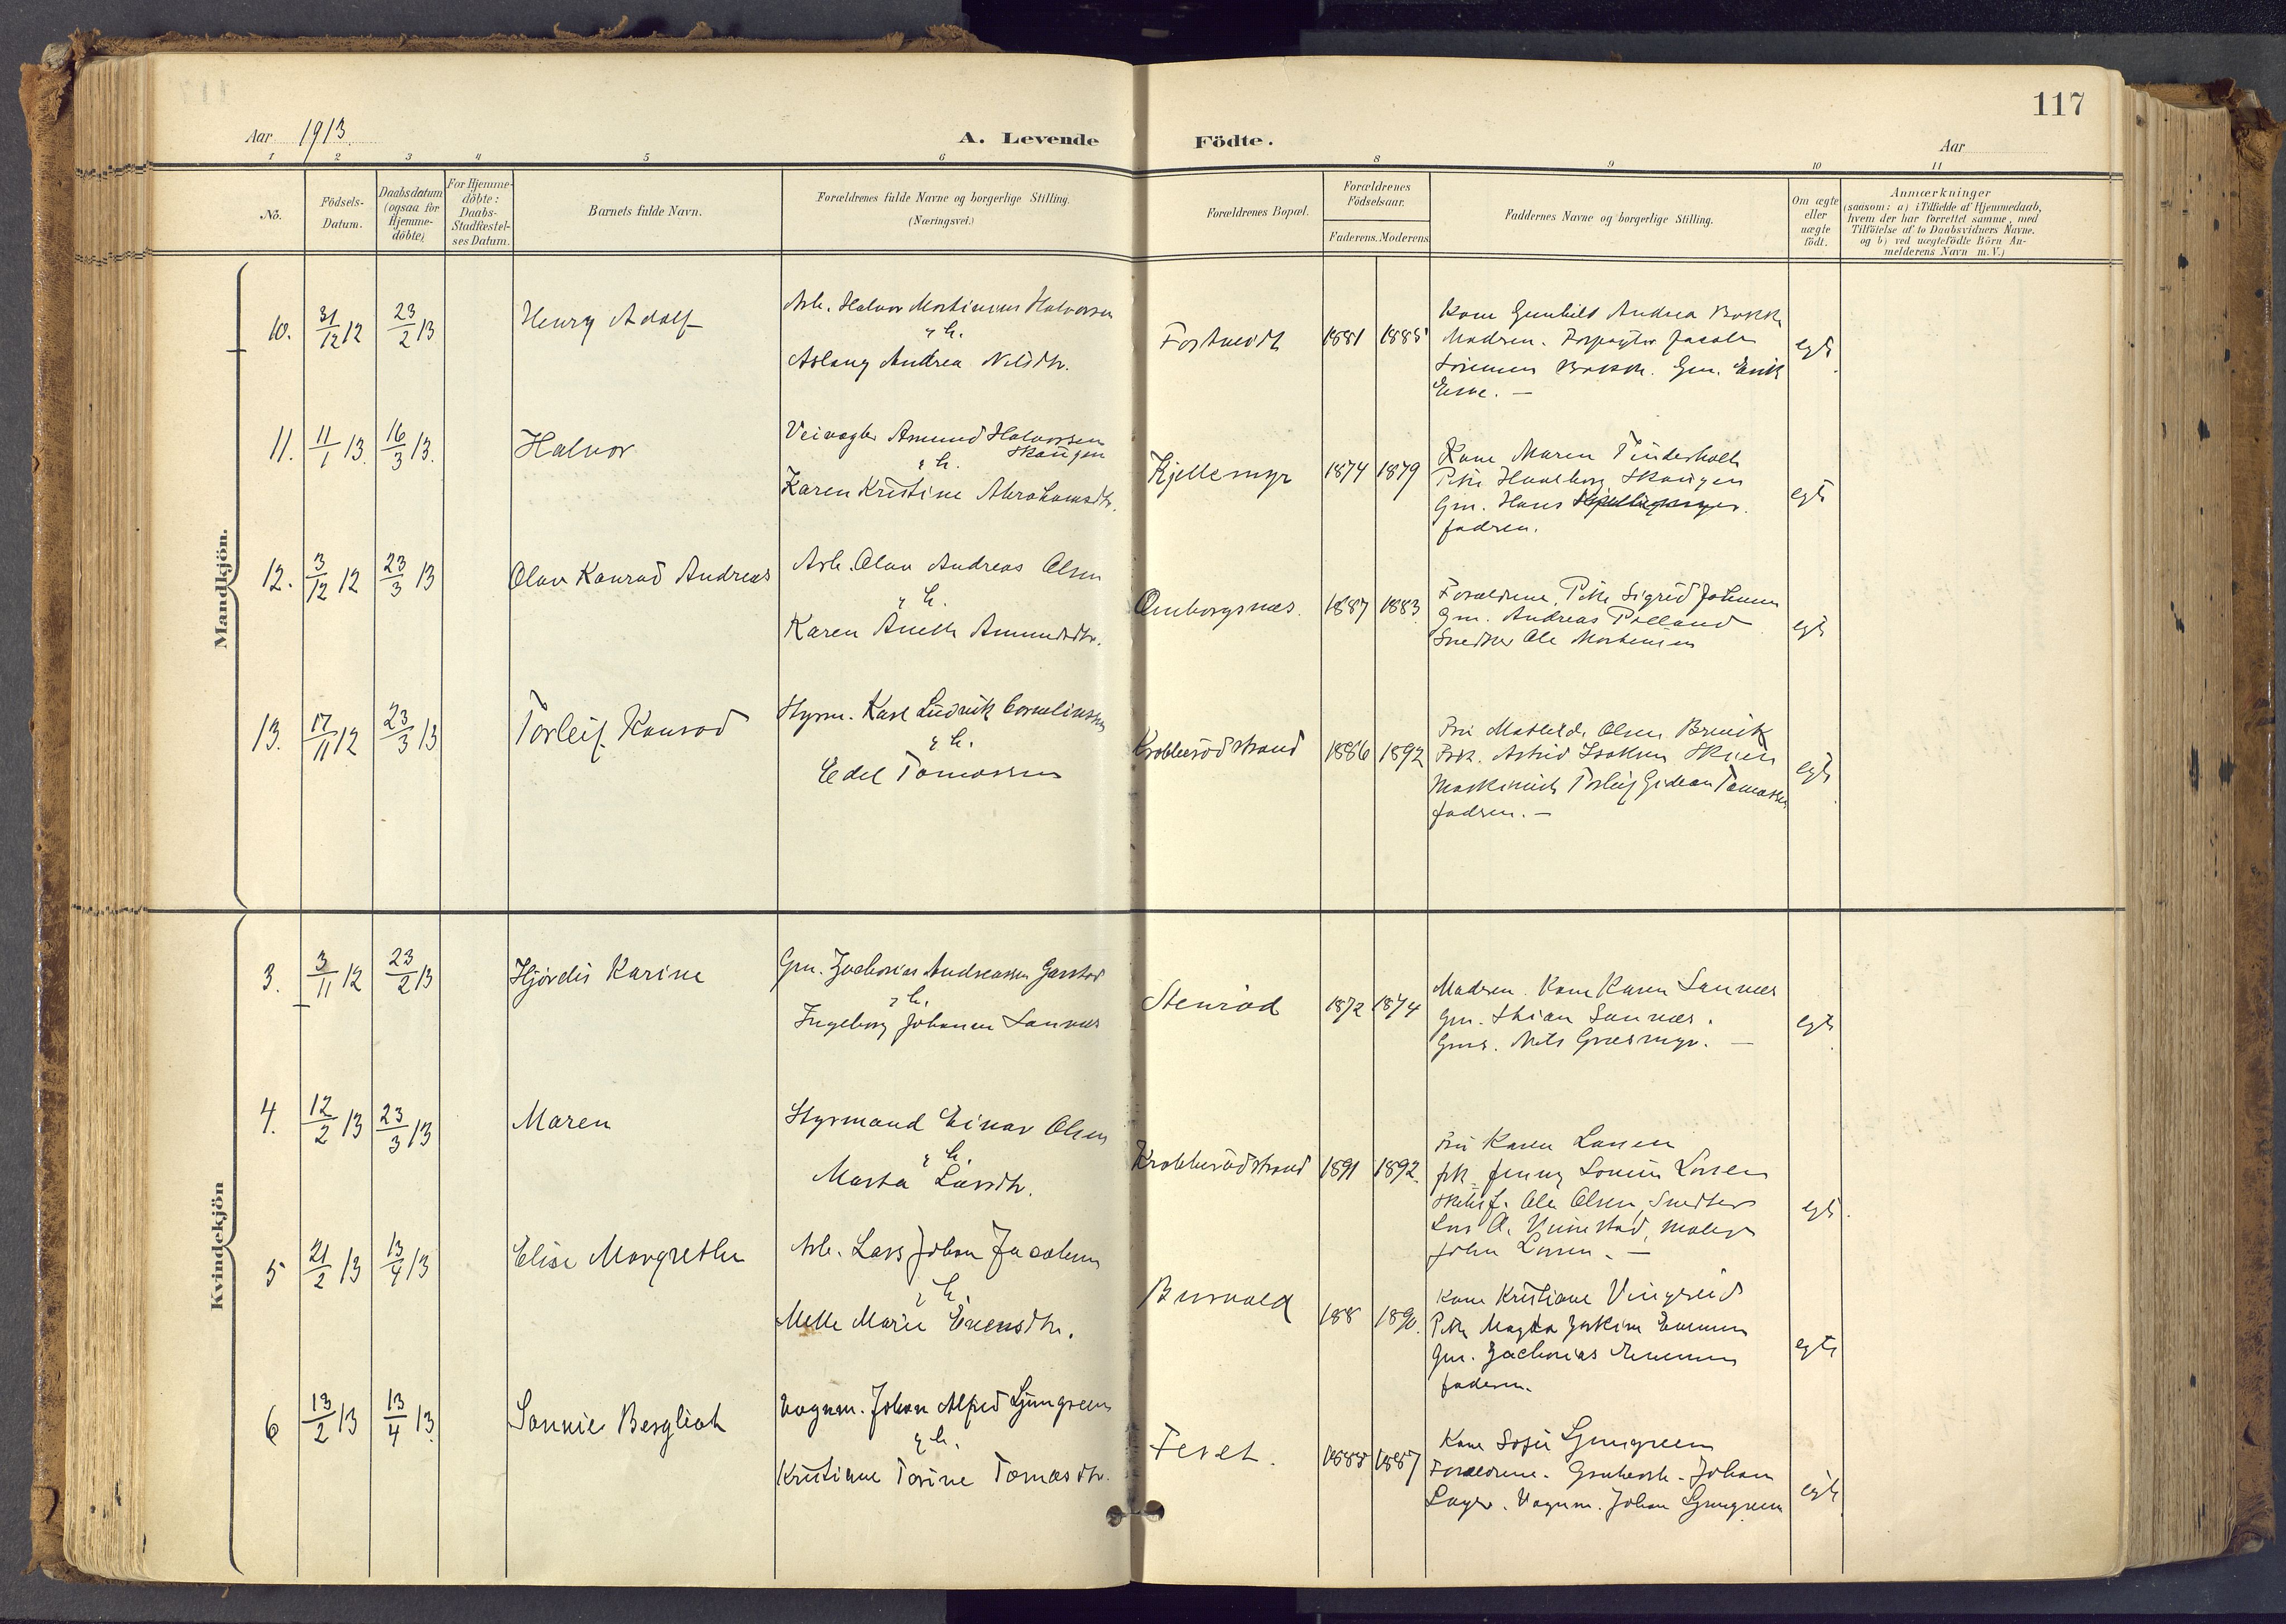 117
Aar 1913.
A. Levende Födte.
Aar
1 2 3 4 5 6 8 9 10 11
No.
Födsels-
Datum.
Daabsdatum
(ogsaa for
Hjemme-
döbte)
For Hjemme-
döbte:
Daabs-
Stadfæstel-
ses Datum.
Barnets fulde Navn.
Forældrenes fulde Navne og borgerlige Stilling.
(Næringsvei.)
Forældrenes Bopæl.
Forældrenes
Födselsaar.
Faderens. Moderens
Faddernes Navne og borgerlige Stilling.
Om ægte
eller
uægte
födt.
Anmærkninger
(saasom: a) i Tilfælde af Hjemmedaab,
hvem der har forrettet samme, med
Tilföielse af to Daabsvidners Navne.
og b) ved uægtefödte Börn An-
melderens Navn m.V.)
Mandkjön.
10. 31/12 12 23/2 13 Henry Adolf
Arb. Halvor Martinius Halvorsen
& h.
Aslaug Andrea Nilsdtr.
1881 1885
Kone Gunhild Andrea Bakke
Madsen. Forpagter Jacob
Bakke. Gm. Erik
egte
11. 11/1 13. 16/3 13. Halvor
Veivogter Amund Halvorsen
Skaugen
& h.
Karen Kristine Abrahamsdtr.
Kjellemyr 1874 1879
Kone Maren Tinderholt
Pike Skaugen
Gm. Hans
fadren.
egte
12. 3/12 12 23/3 13 Olav Konrad Andreas
Arb. Olav Andreas Olsen
& h.
Karen Aneth Amundsdtr.
Omborgsnæs. 1887 1883
Forældrene, Pike Sigrid Johnsen
Gm. Andreas
Snedker Ole Mortensen
egte
13. 17/11 12 23/3 13 Torleif Konrad
Styrm. Karl Ludvik Corneliussen
& h.
Edel Tomassen
Krabberødstrand 1886 1892
Fru Mathilde Olsen Brevik
Frk. Astrid Isaksen Skien
Maskinist Torleif Gideon Tomassen
fadren. —
egte
Kvindekjön
3. 3/11 12 23/2 13 Hjørdis Karine
Gm. Zacharias Andreassen
& h.
Ingeborg Johanne Sannes
Stenrød 1872 1874
Madsen. Kone Karen Sannes
Gm. Sannes.
Gms. Nils Græsmyr. —
egte
4. 12/2 13 23/3 13 Maren
Styrmand Einar Olsen
& h.
Marta Larsdtr.
Krabberødstrand 1891 1892.
Fru Karen Larsen
frk. Jenny Larsen
Skibsf. Ole Olsen, Snedker
Lars A. maler
John Larsen. —
egte.
5 21/2 13 13/4 13 Elise Margrethe
Arb. Lars Johan Jacobsen
& h.
Marie Evensdtr.
188 1890.
Kone Kristiane Vingereid
Pike Magda Evensen
Gm. Zacharias
faderen.
egte
6 13/2 13 13/4 13. Sannie Bergliot
Vognm. Johan Alfred Ljungreen
& h.
Kristiane Torine Tomasdtr.
Feset. 1885 1887
Kone Sofie Ljungreen
Forældrene. Johan
Vognm. Johan Ljungreen
egte